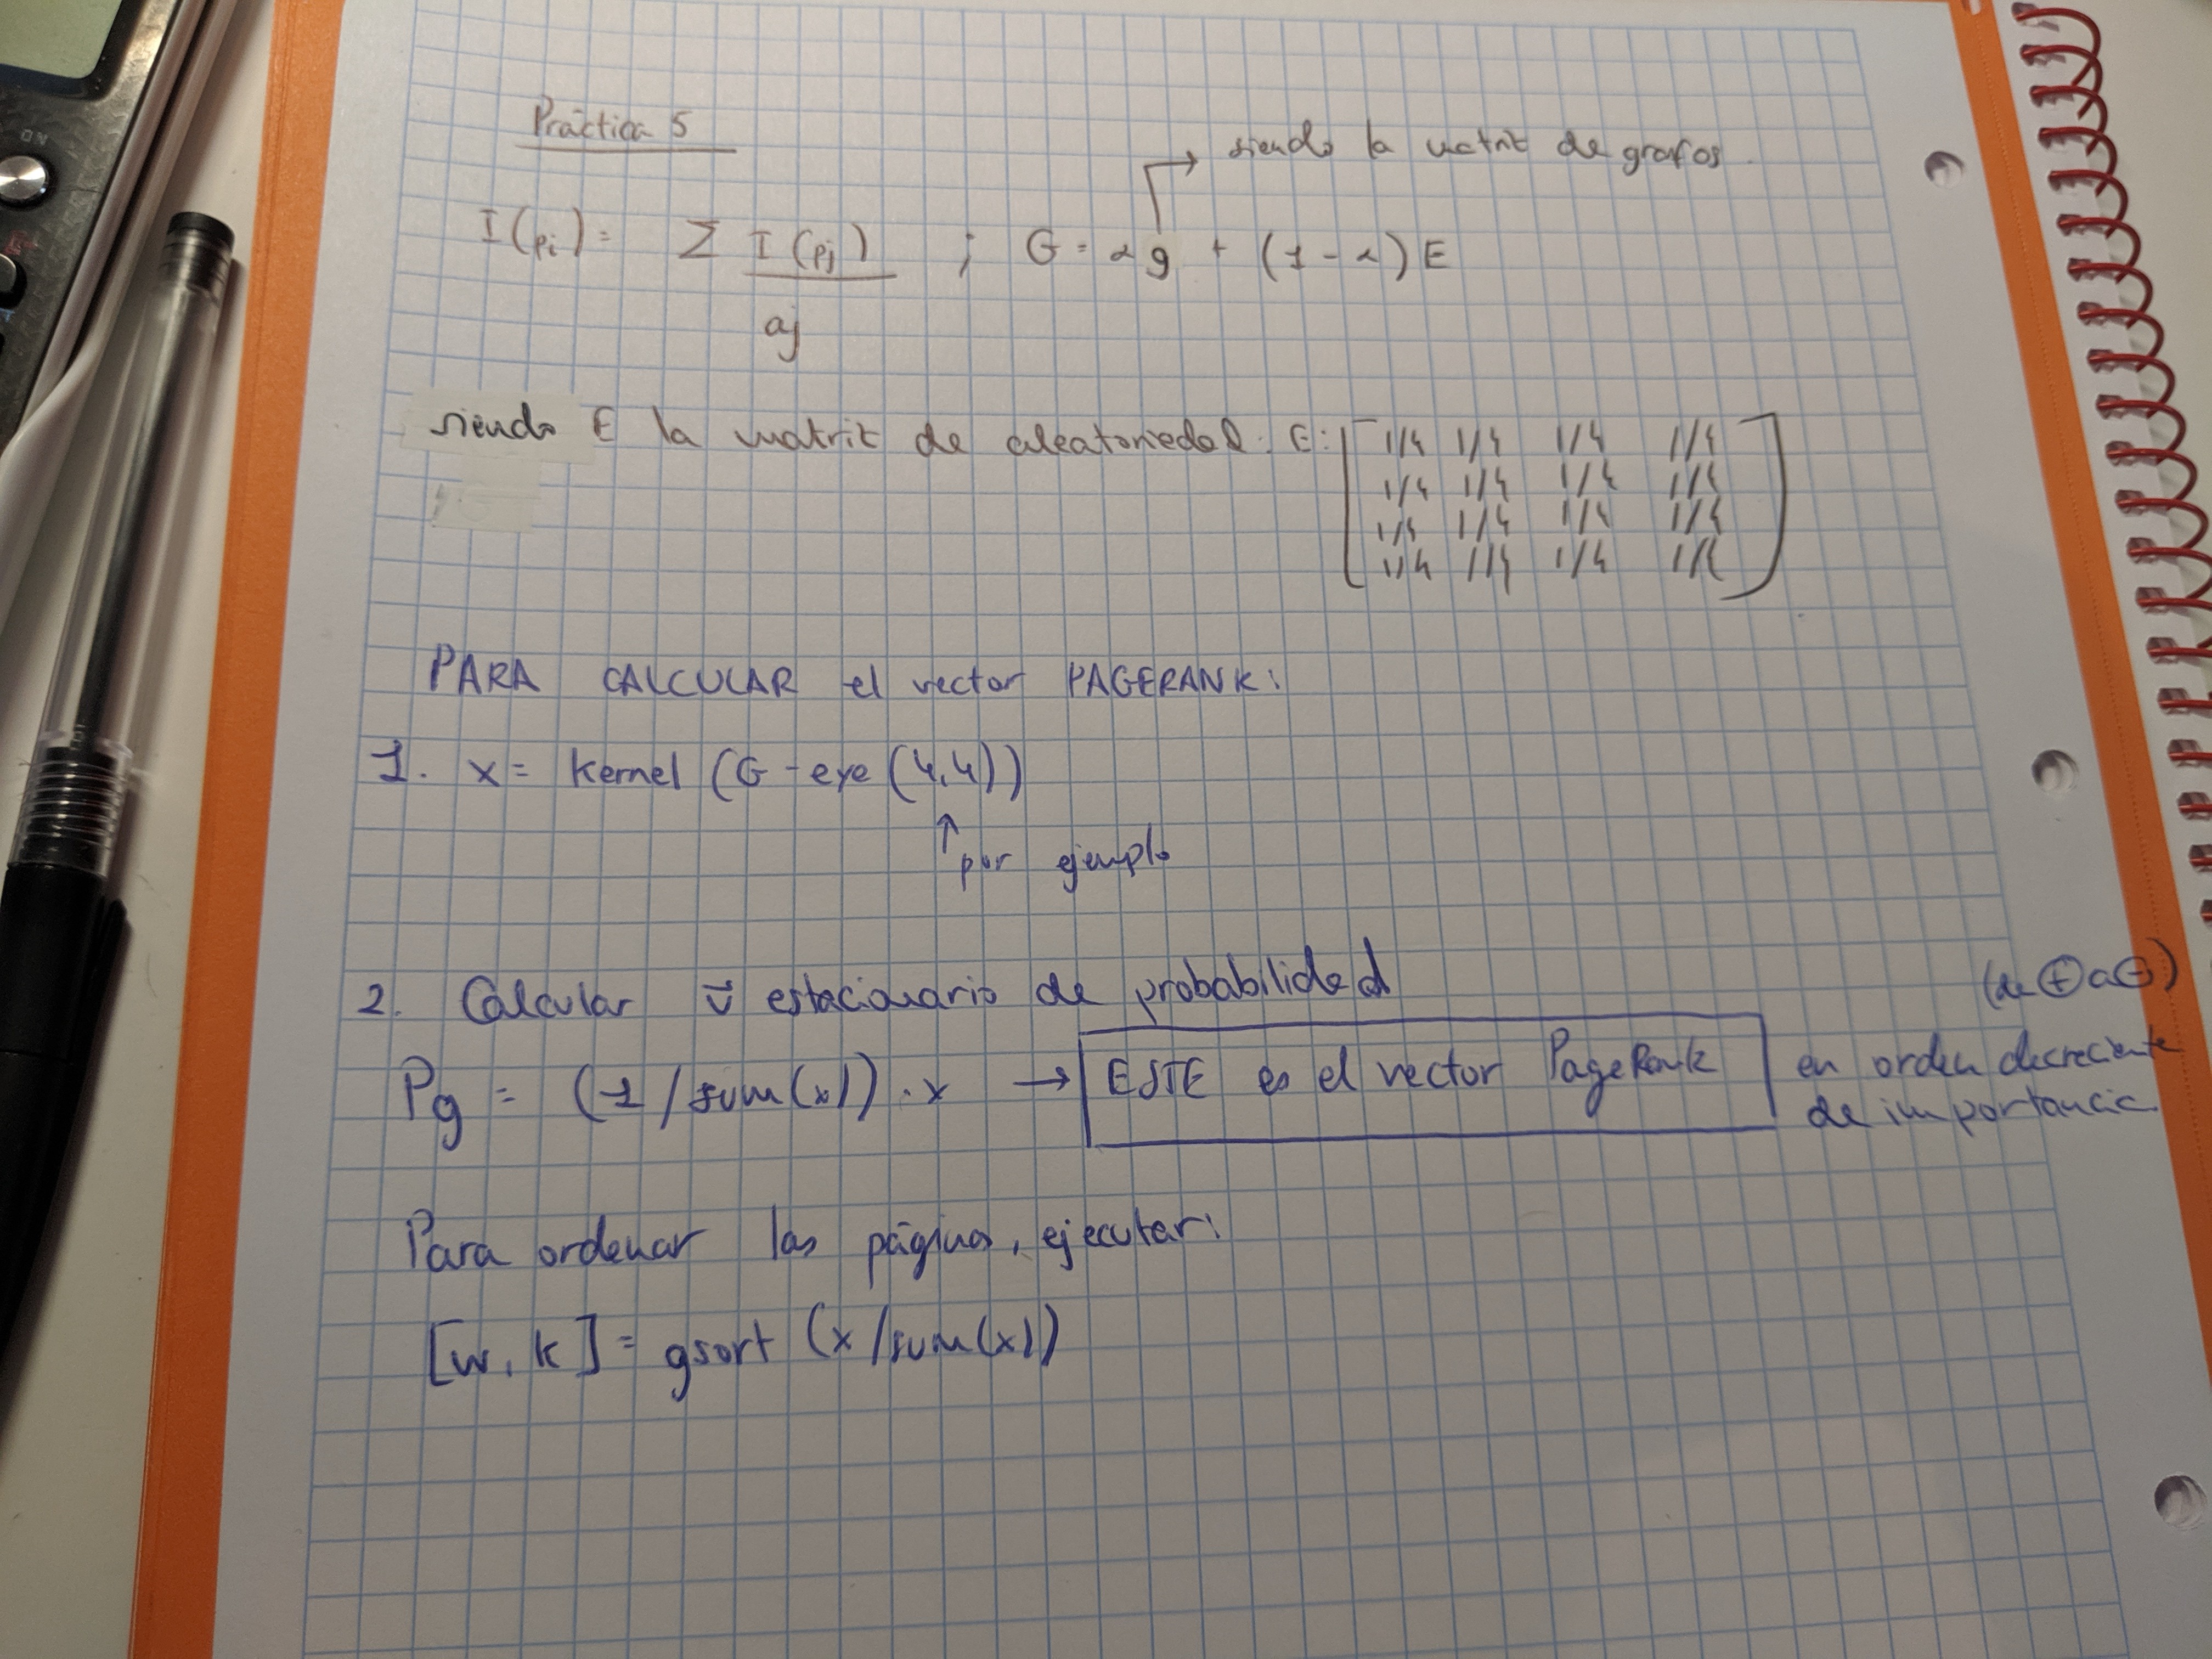 Práctica 5
siendo la matriz de grafos.
I(pi) = Σ I(pj) / aj ; G = αg + (1-α)E
siendo E la matriz de aleatoriedad. E: [ 1/4 1/4 1/4 1/4
1/4 1/4 1/4 1/4
1/4 1/4 1/4 1/4
1/4 1/4 1/4 1/4 ]
PARA CALCULAR el vector PAGERANK:
1. x = kernel (G-eye(4,4))
↑ por ejemplo
2. Calcular v̄ estacionario de probabilidad
(de ⊕ a ⊖)
Pg = (1/sum(x)).x → ESTE es el vector PageRank en orden decreciente
de importancia.
Para ordenar las páginas, ejecutar:
[w,k] = gsort (x/sum(x))
ON